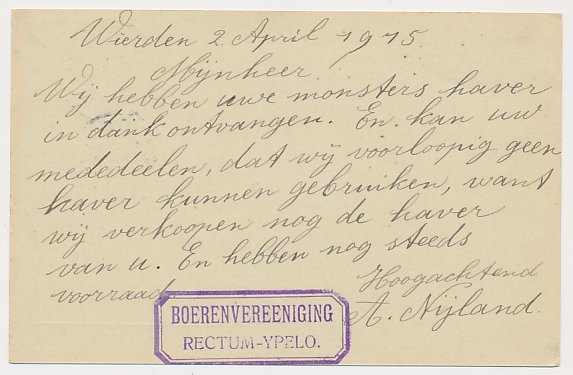 Wierden 2 April 1915.
Mijnheer.
Wij hebben uwe monsters haver
in dank ontvangen. En kan uw
mededeelen, dat wij voorloopig geen
haver kunnen gebruiken, want
wij verkoopen nog de haver
van u. En hebben nog steeds
voorraad
Hoogachtend
A. Nijland.
BOERENVEREENIGING
RECTUM-YPELO.